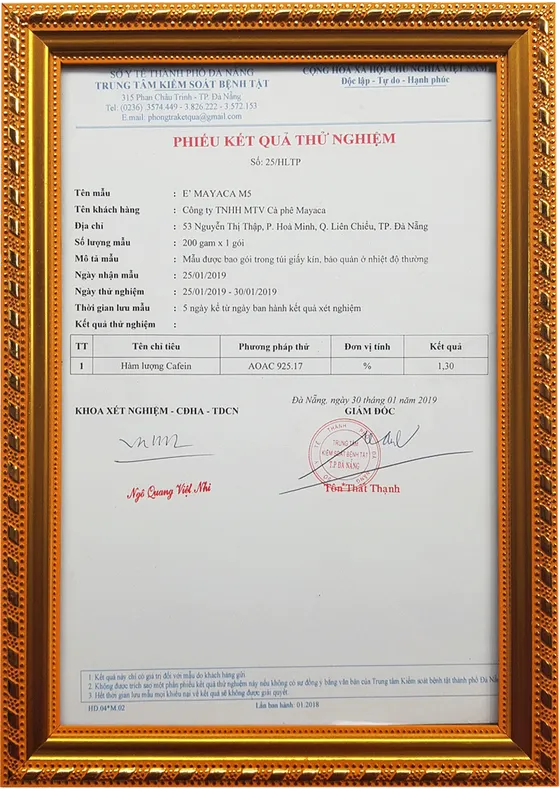 SỞ Y TẾ THÀNH PHỐ ĐÀ NẴNG
TRUNG TÂM KIỂM SOÁT BỆNH TẬT
315 Phan Châu Trinh - TP. Đà Nẵng
Tel: (0236) 3574.449 - 3.826.222 - 3.572.153
E.mail: phongtraketqua@gmail.com
CỘNG HÒA XÃ HỘI CHỦ NGHĨA VIỆT NAM
Độc lập - Tự do - Hạnh phúc
PHIẾU KẾT QUẢ THỬ NGHIỆM
Số: 25/HLTP
Tên mẫu : E' MAYACA M5
Tên khách hàng : Công ty TNHH MTV Cà phê Mayaca
Địa chỉ : 53 Nguyễn Thị Thập, P. Hoà Minh, Q. Liên Chiểu, TP. Đà Nẵng
Số lượng mẫu : 200 gam x 1 gói
Mô tả mẫu : Mẫu được bao gói trong túi giấy kín, bảo quản ở nhiệt độ thường
Ngày nhận mẫu : 25/01/2019
Ngày thử nghiệm : 25/01/2019 - 30/01/2019
Thời gian lưu mẫu : 5 ngày kể từ ngày ban hành kết quả xét nghiệm
Kết quả thử nghiệm :
TT Tên chỉ tiêu Phương pháp thử Đơn vị tính Kết quả
1 Hàm lượng Cafein AOAC 925.17 % 1,30
Đà Nẵng, ngày 30 tháng 01 năm 2019
KHOA XÉT NGHIỆM - CĐHA - TDCN GIÁM ĐỐC
TRUNG TÂM
KIỂM SOÁT BỆNH TẬT
T.P ĐÀ NẴNG
Ngô Quang Việt Nhi Tôn Thất Thạnh
1. Kết quả này chỉ có giá trị đối với mẫu do khách hàng gửi.
2. Không được trích sao một phần phiếu kết quả thử nghiệm này nếu không có sự đồng ý bằng văn bản của Trung tâm Kiểm soát bệnh tật thành phố Đà Nẵng
3. Hết thời gian lưu mẫu mọi khiếu nại về kết quả sẽ không được giải quyết
HD.04*M.02 Lần ban hành: 01.2018